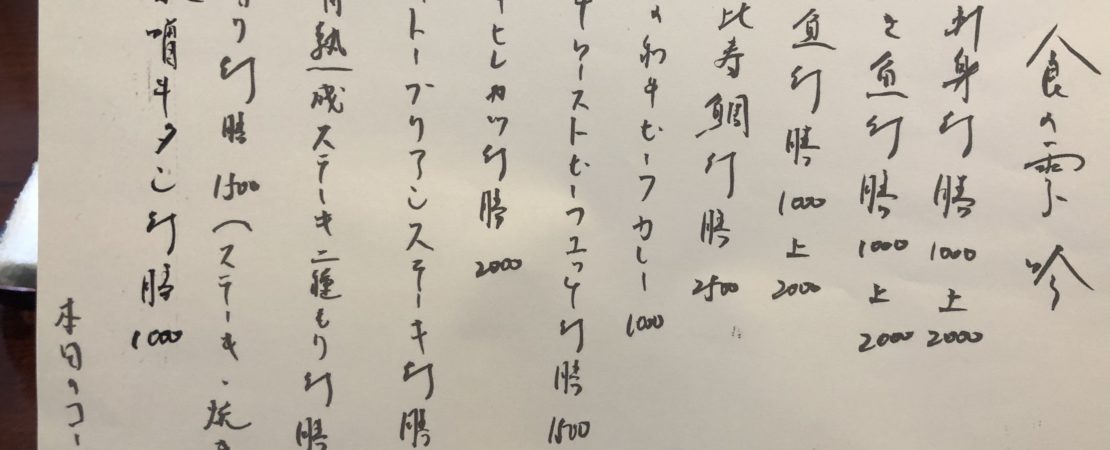 食の雫 吟
刺身御膳 1000 上 2000
き魚御膳 1000 上 2000
魚御膳 1000 上 2000
比寿鯛御膳 2500
の和牛ビーフカレー 1000
牛ローストビーフユッケ御膳 1500
ヒレカツ御膳 2000
トーブリアンステーキ御膳
熟成ステーキ二種もり御膳
り御膳 1500 (ステーキ・焼き
噌牛タン御膳 1000
本日のコー